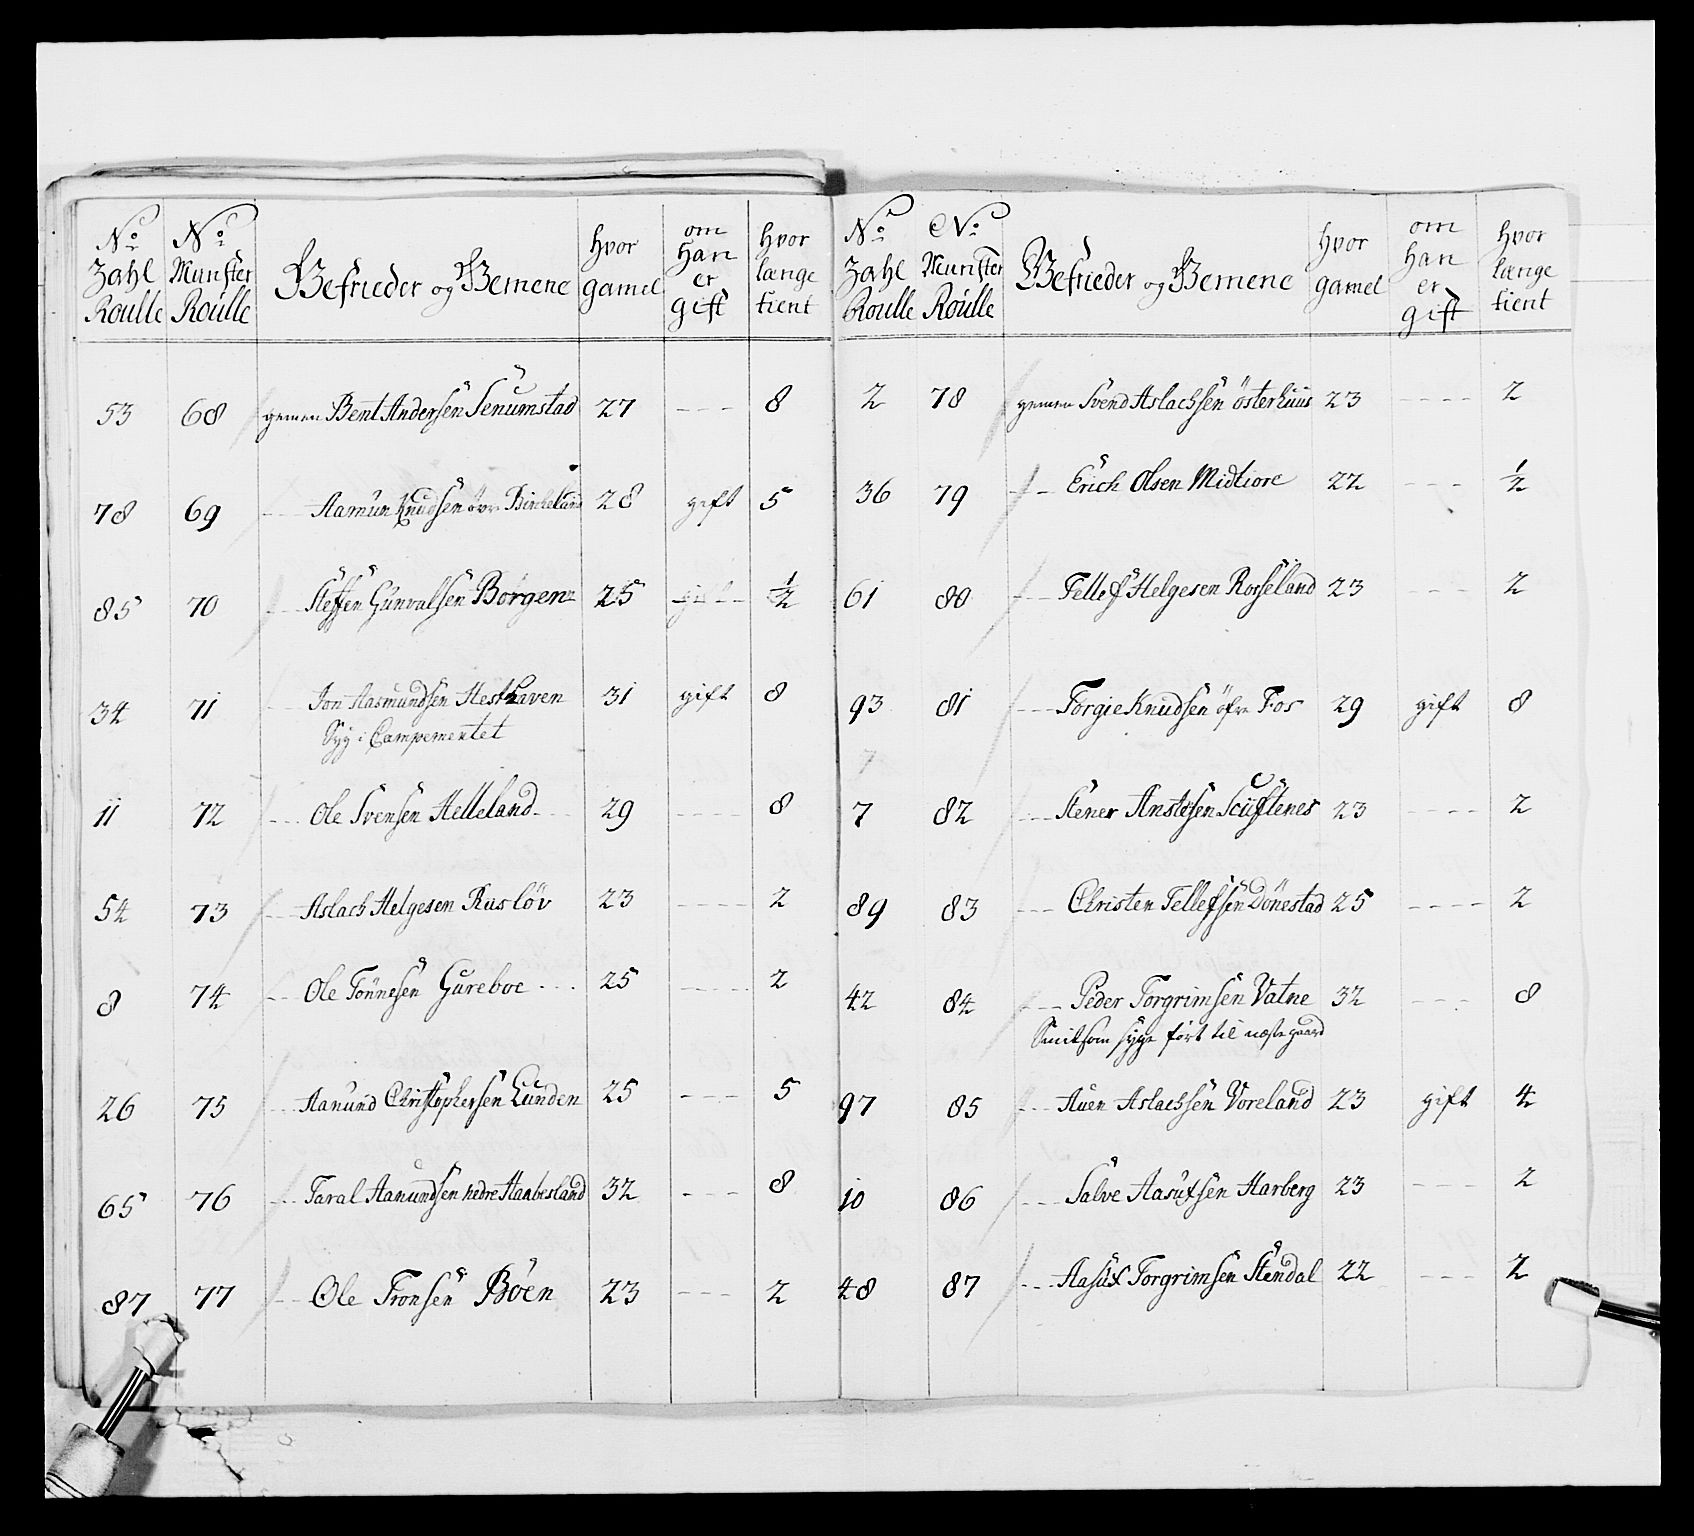 No Zahl Roulle | No Munster Roulle | Befrieder og Gemene | hvor gamel | om han er gift | hvor længe tient
53 68 gemen Bent Andersen Senumstad 27 --- 8
78 69 --- Aamun Knudsen övr Birkeland 28 gift 5
85 70 --- Steffen Gunvalsen Borgen 25 --- 1/2
34 71 --- Jon Aasmundsen Hesthaven 31 gift 8
Syg i Campementet
11 72 --- Ole Svensen Helleland --- 29 --- 8
54 73 --- Aslach Helgesen Rusløv 23 --- 2
8 74 --- Ole Tönnesen Gureboe --- 25 --- 2
26 75 --- Aanund Christophersen Lunden 25 --- 5
65 76 --- Taral Aanundsen nedre Haabesland 32 --- 8
87 77 --- Ole Tronsen Böen 23 --- 2
No Zahl Roulle | No Munster Roulle | Befrieder og Gemene | hvor gamel | om han er gift | hvor længe tient
2 78 gemen Svend Aslachsen österhuus 23 --- 2
36 79 --- Erich Olsen Midtiore 22 --- 1/2
61 80 --- Tellef Helgesen Rosseland 23 --- 2
93 81 --- Torgie Knudsen öfre Fos 29 gift 8
7 82 --- Stener 23 --- 2
89 83 --- Christen Tellefsen Dönestad 25 --- 2
42 84 --- Peder Torgrimsen Vatne 32 --- 8
som syge ført til næste gaard
97 85 --- Auen Aslachsen Voreland 23 gift 4
10 86 --- Salve Harberg 23 --- 2
48 87 --- Torgrimsen Stendal 22 --- 2